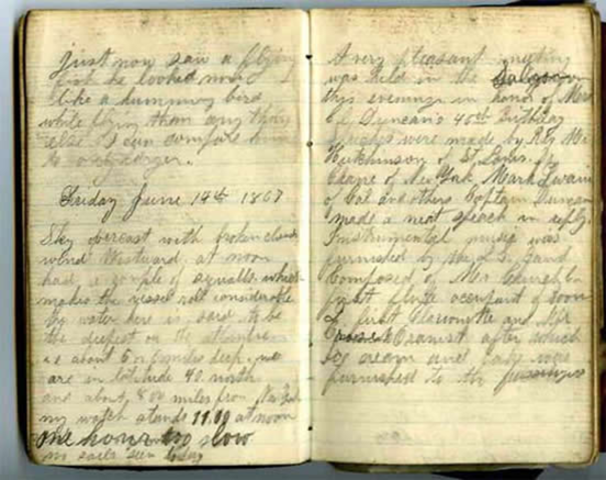 just now saw a flying
fish he looked more
like a humming bird
while flying than any thing
else I can compare him
to
Friday June 14th 1867
Sky overcast with broken clouds
wind Westward at noon
had a couple of squalls which
makes the vessel roll considerable
the water here is said to be
the deepest on the Atlantic
i.e about 5 or 6 miles deep. we
are in latitude 40 north
and about 800 miles from New York
my watch stands 11.00 at noon
one hour too slow
no sails seen today
A very pleasant meeting
was held in the Saloon
this evening in honor of Mrs
C. C. Duncan's 46th Birthday
Speeches were made by Rev Mr
Hutchinson of St Louis. Dr
of New York Mark Twain
of Cal and others Captain Duncan
made a neat speach in reply.
Instrumental music was
furnished by the Q. C. Band
composed of Mr
first flute occupant of room
I first Clarionette and Mr
Pianist after which
Ice cream and cake were
furnished to the passengers